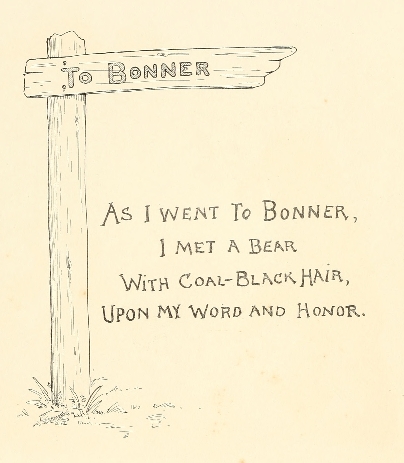 To BONNER
As I WENT To BONNER,
I MET A BEAR
WITH COAL-BLACK HAIR,
UPON MY WORD AND HONOR.